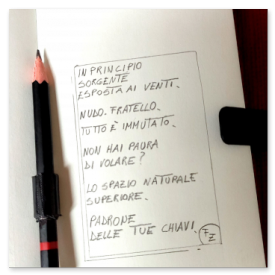 IN PRINCIPIO
SORGENTE
ESPOSTA AI VENTI.
NUDO. FRATELLO.
TUTTO È IMMUTATO.
NON HAI PAURA
DI VOLARE?
LO SPAZIO NATURALE
SUPERIORE.
PADRONE
DELLE TUE CHIAVI.
FZ